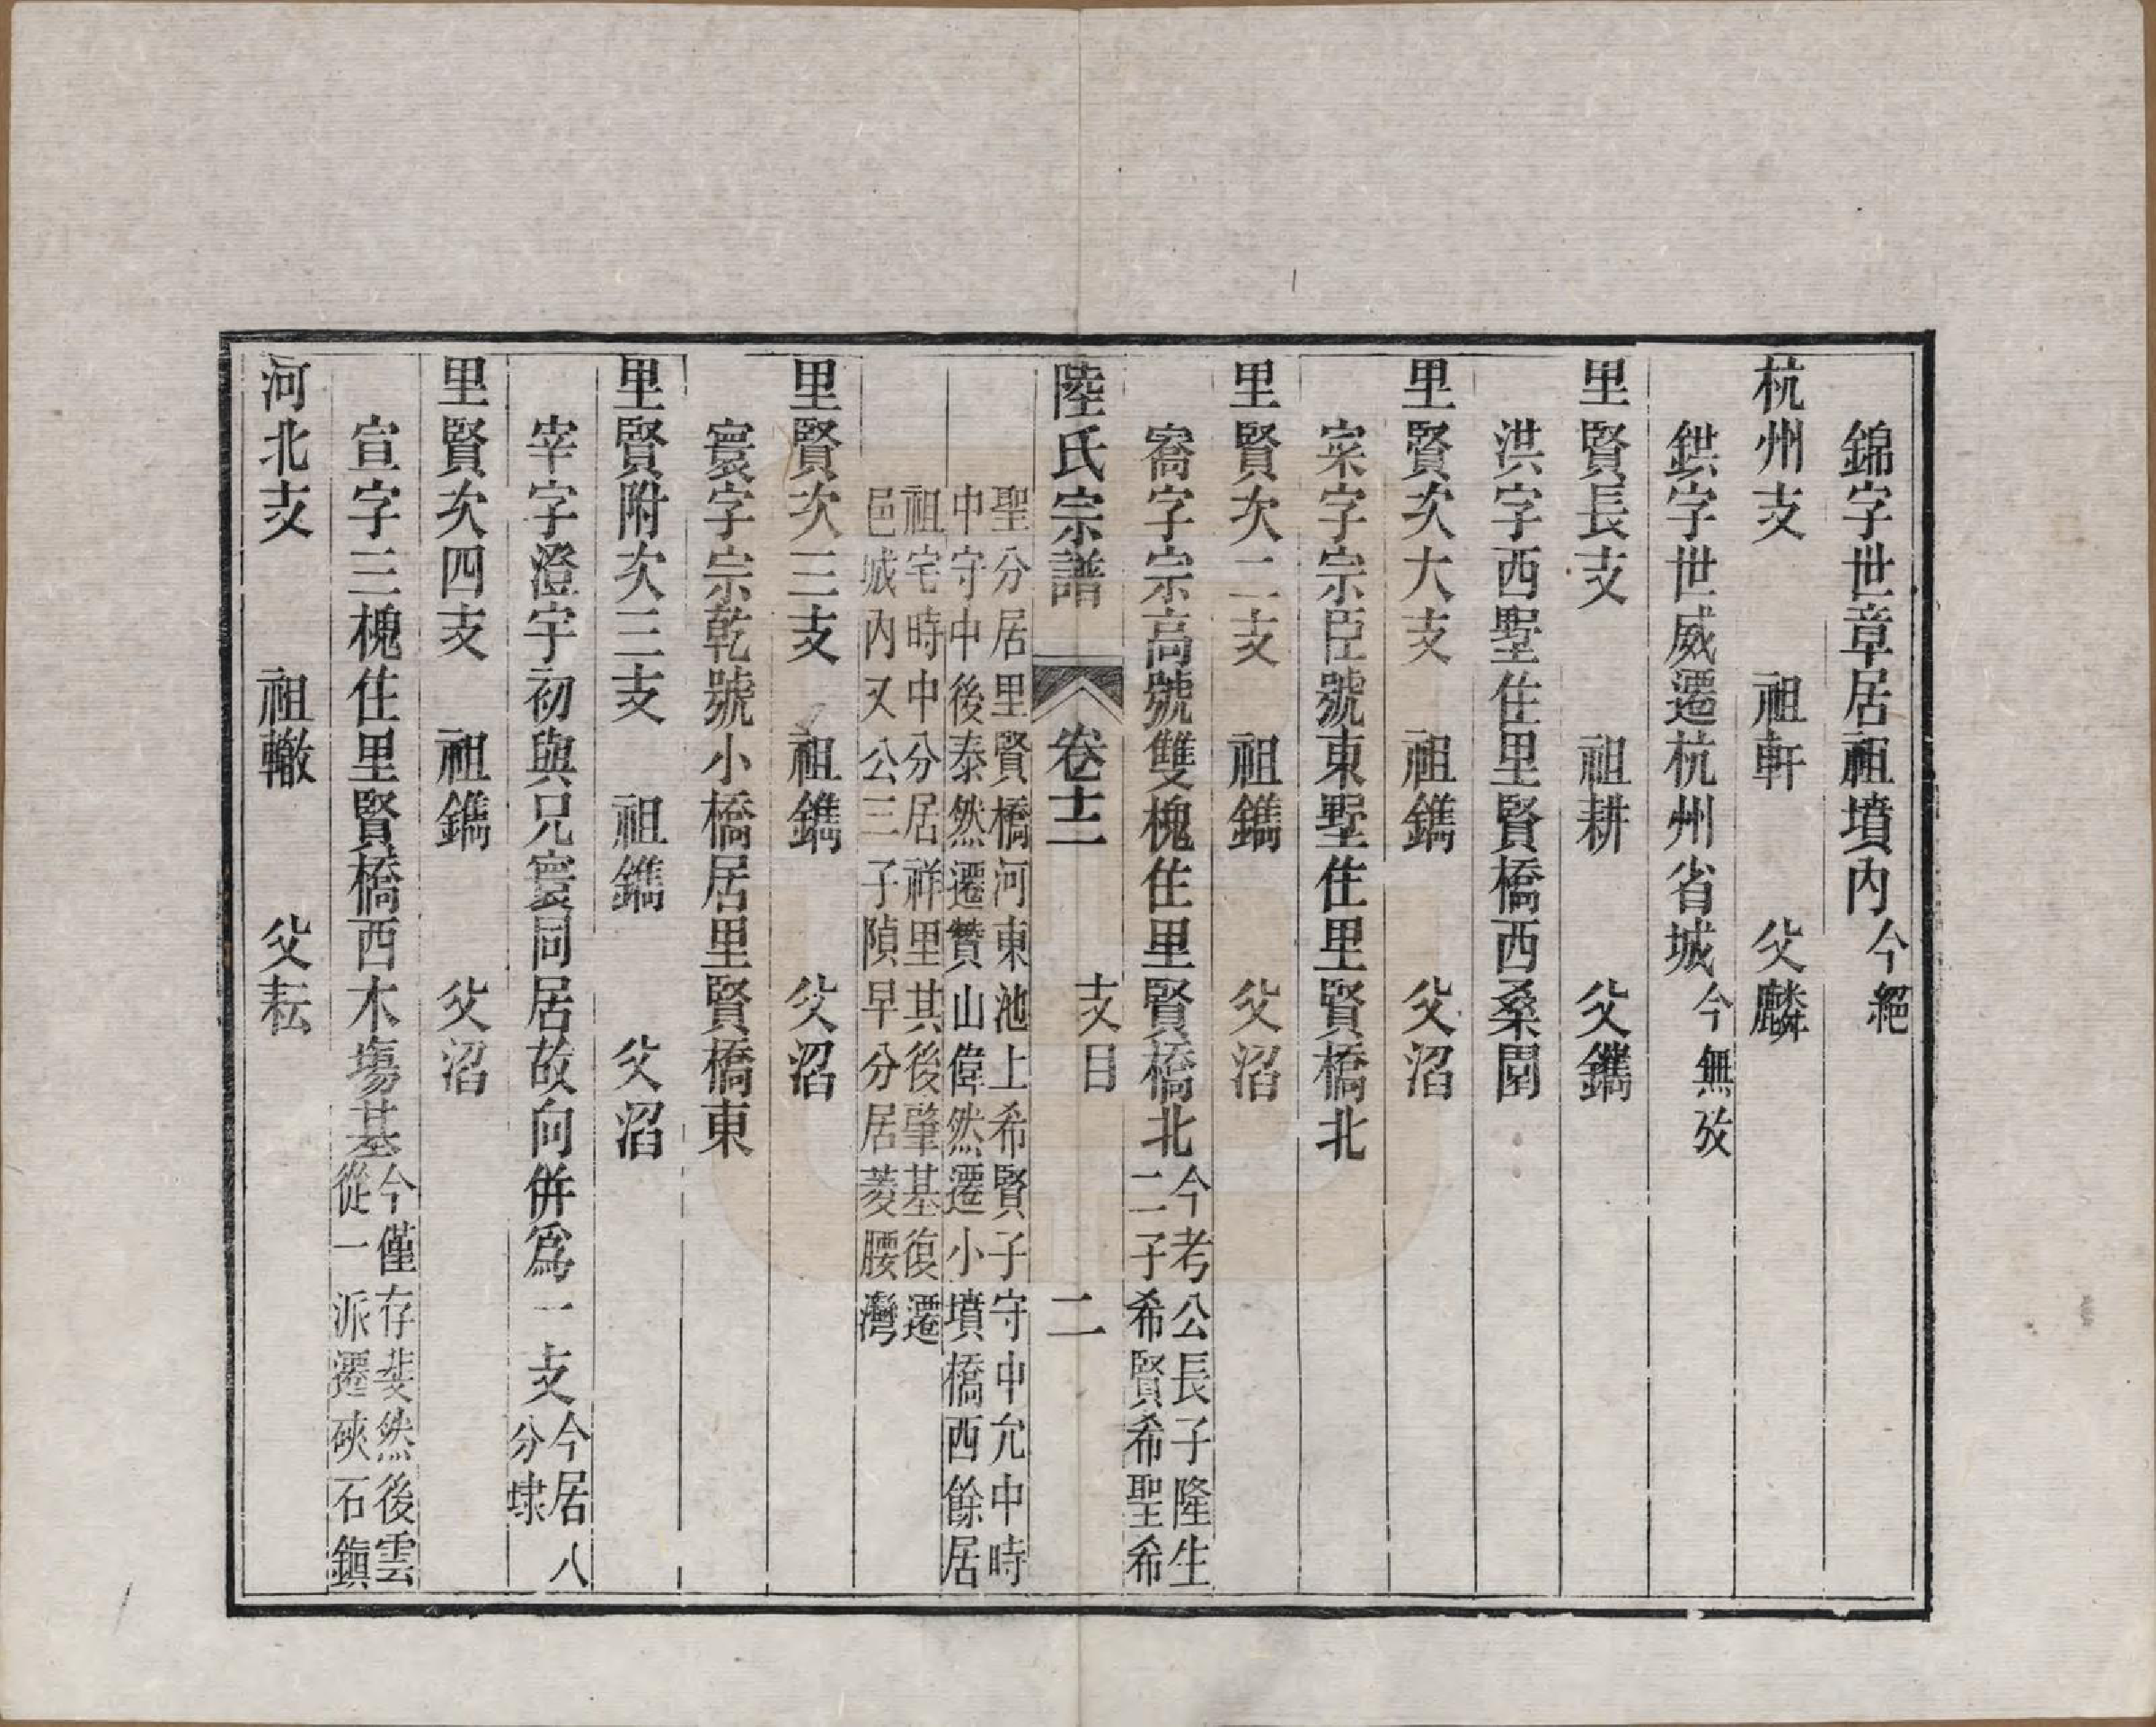 錦字世章居祖墳內今絕
杭州支　祖軒　父麟
鉷字世威遷杭州省城今無攷
里賢長支　祖耕　父鐫
洪字西墅住里賢橋西桑園
里賢次大支　祖鐫　父沼
寀字宗臣號東墅住里賢橋北
里賢次二支　祖鐫　父沼
寯字宗高號雙槐住里賢橋北
今考公長子隆生
二子希賢希聖希
陸氏宗譜　卷十二　支目　二
聖分居里賢橋河東池上希賢子守中允中時
中守中後泰然遷贊山偉然遷小墳橋西餘居
祖宅時中分居祥里其後肇基復遷
邑城內又公三子隕早分居菱腰灣
里賢次三支　祖鐫　父沼
寰字宗乾號小橋居里賢橋東
里賢附次三支　祖鐫　父沼
宰字澄宇初與兄寰同居故向併為一支
今居八
分埭
里賢次四支　祖鐫　父沼
宣字三槐住里賢橋西木塲基
今僅存斐然後雲
從一派遷硤石鎮
河北支　祖轍　父耘